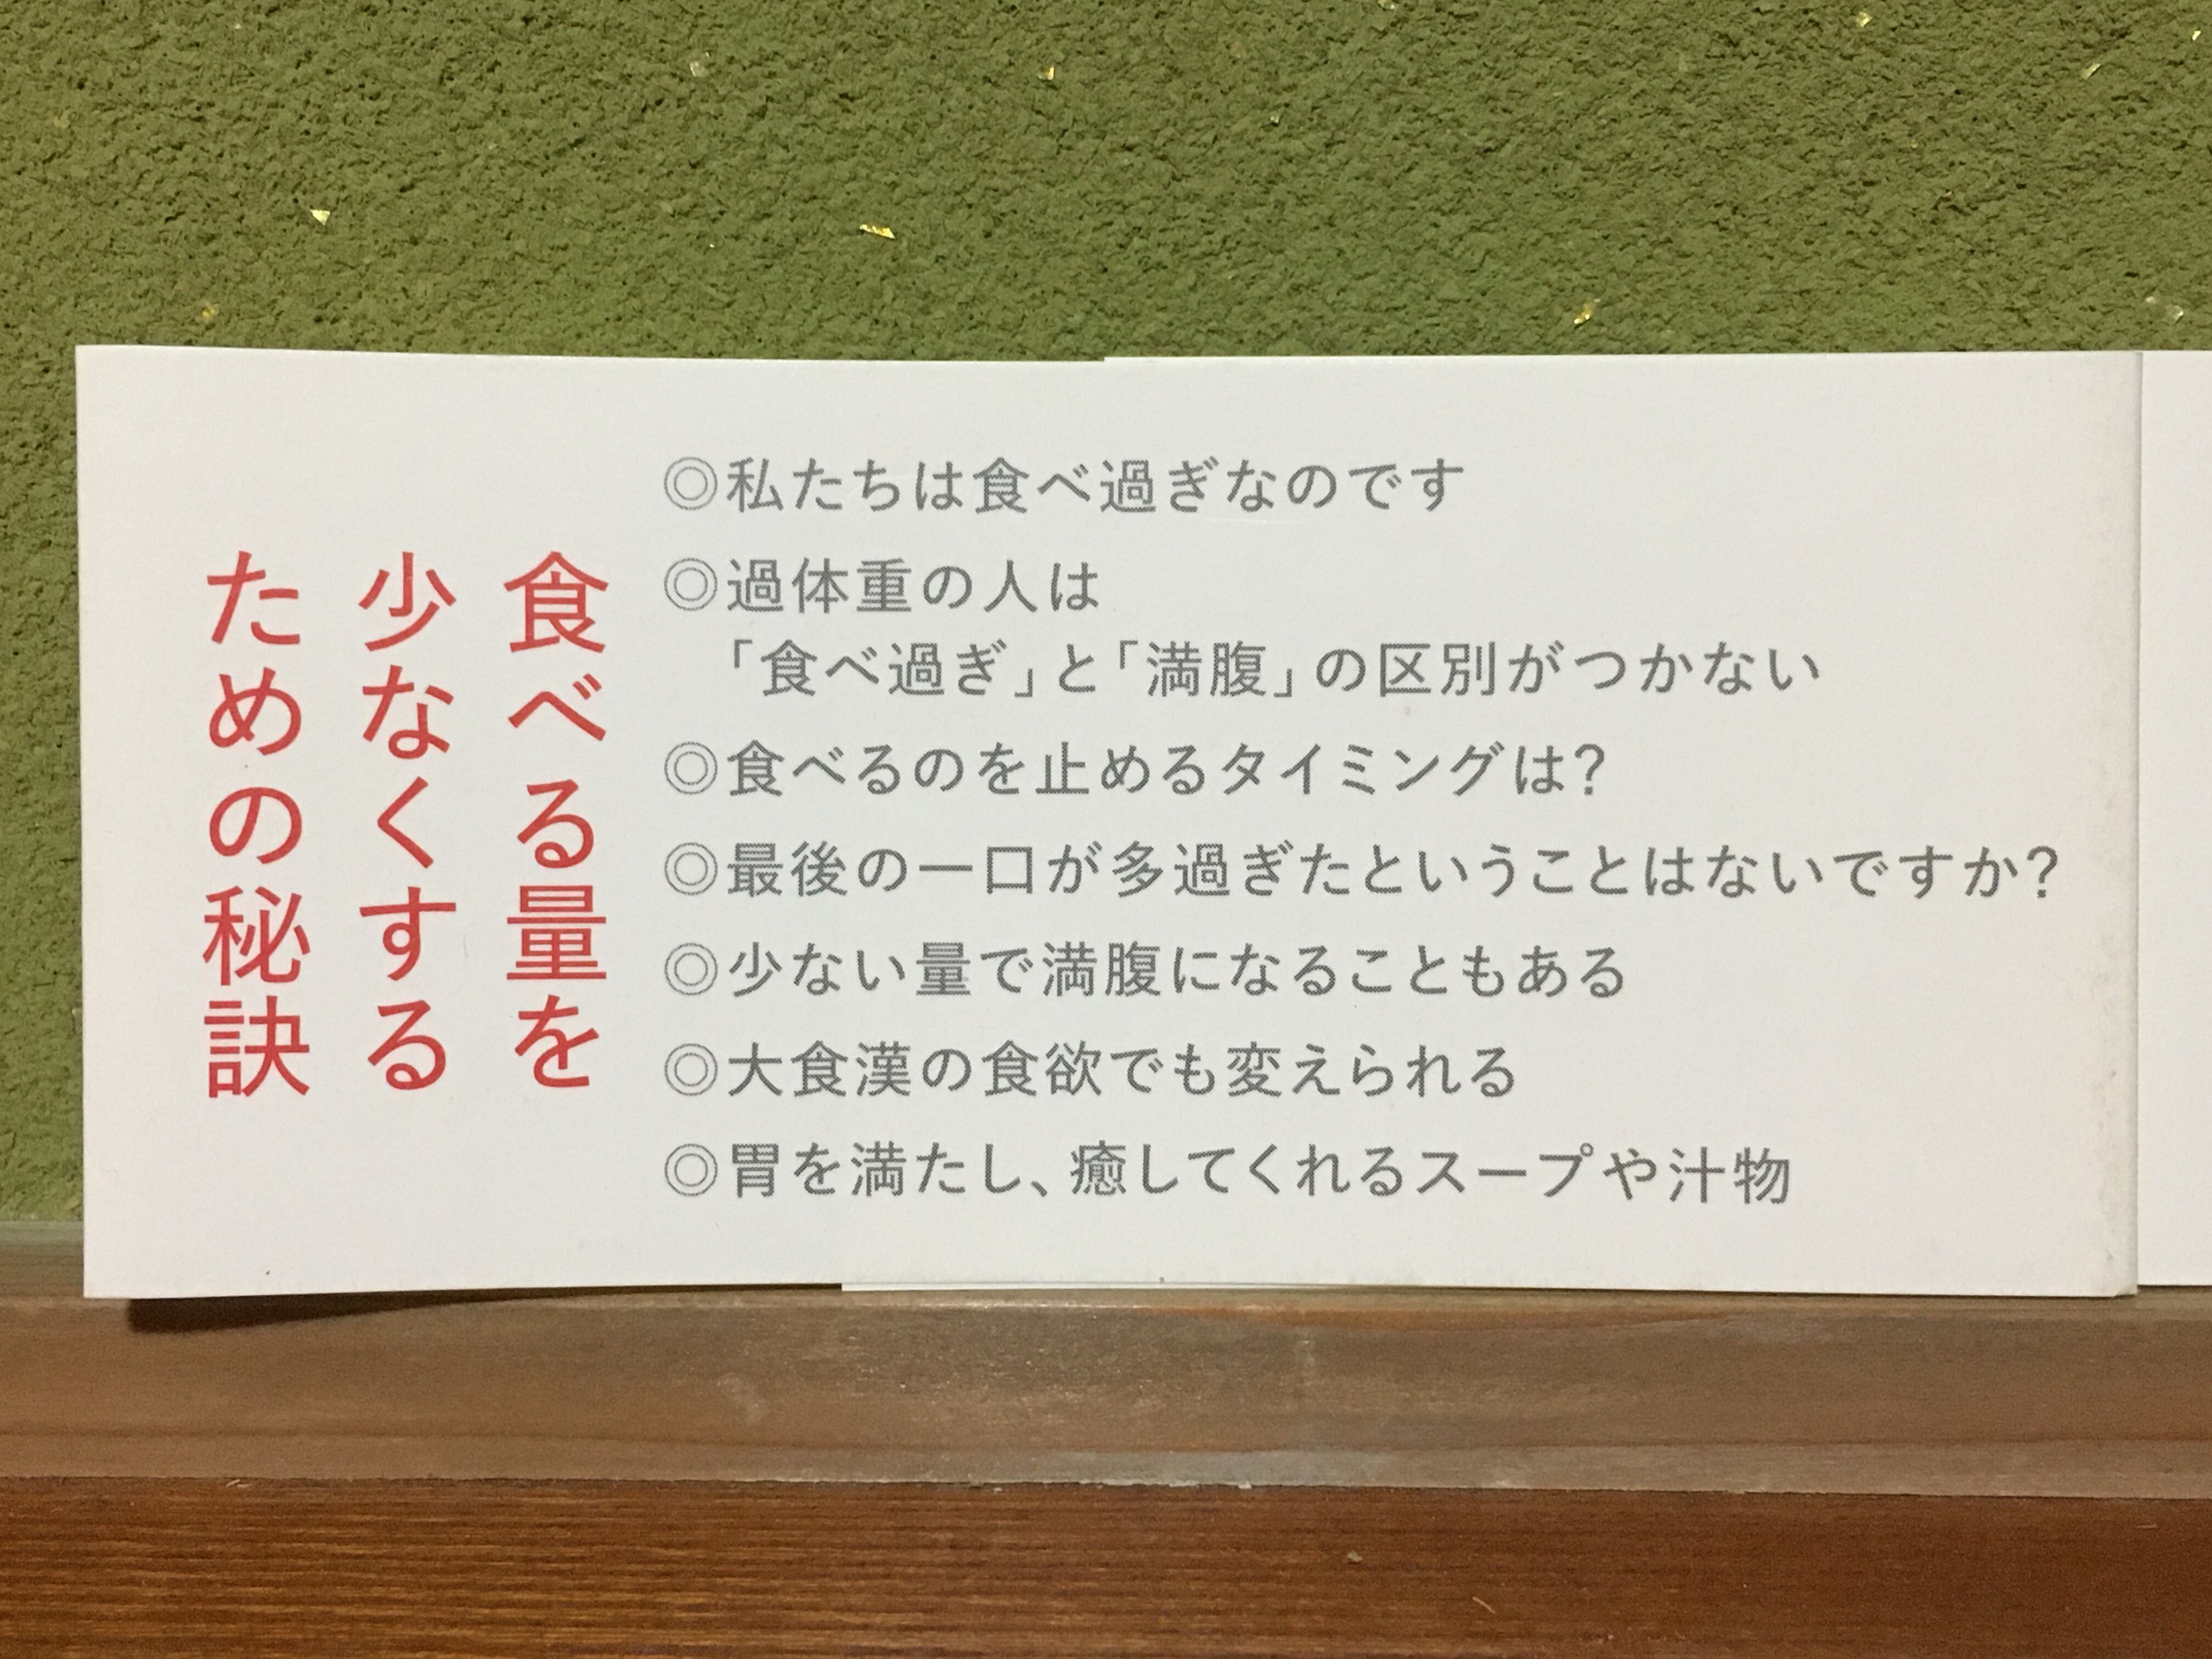 食べる量を
少なくする
ための秘訣
◎私たちは食べ過ぎなのです
◎過体重の人は
「食べ過ぎ」と「満腹」の区別がつかない
◎食べるのを止めるタイミングは?
◎最後の一口が多過ぎたということはないですか?
◎少ない量で満腹になることもある
◎大食漢の食欲でも変えられる
◎胃を満たし、癒してくれるスープや汁物